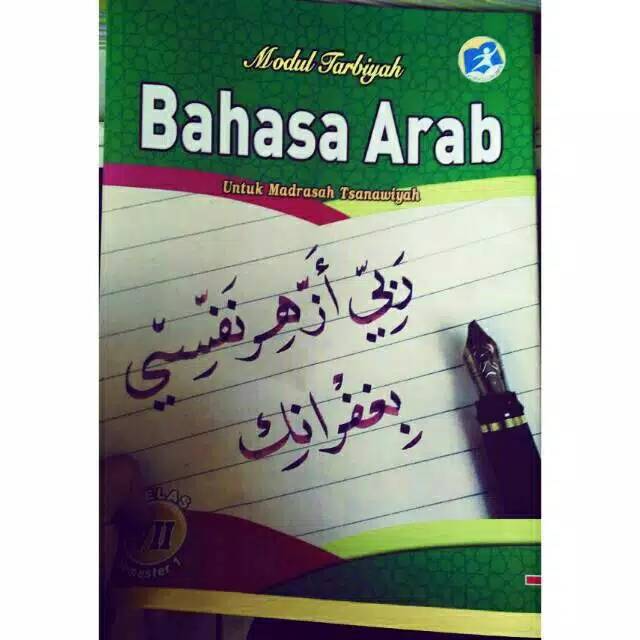 Modul Tarbiyah
Bahasa Arab
Untuk Madrasah Tsanawiyah
رَبِّيّ أَزْهِر نَفْسِيّ
بِغفْرانِك
ELAS
II
mester 1